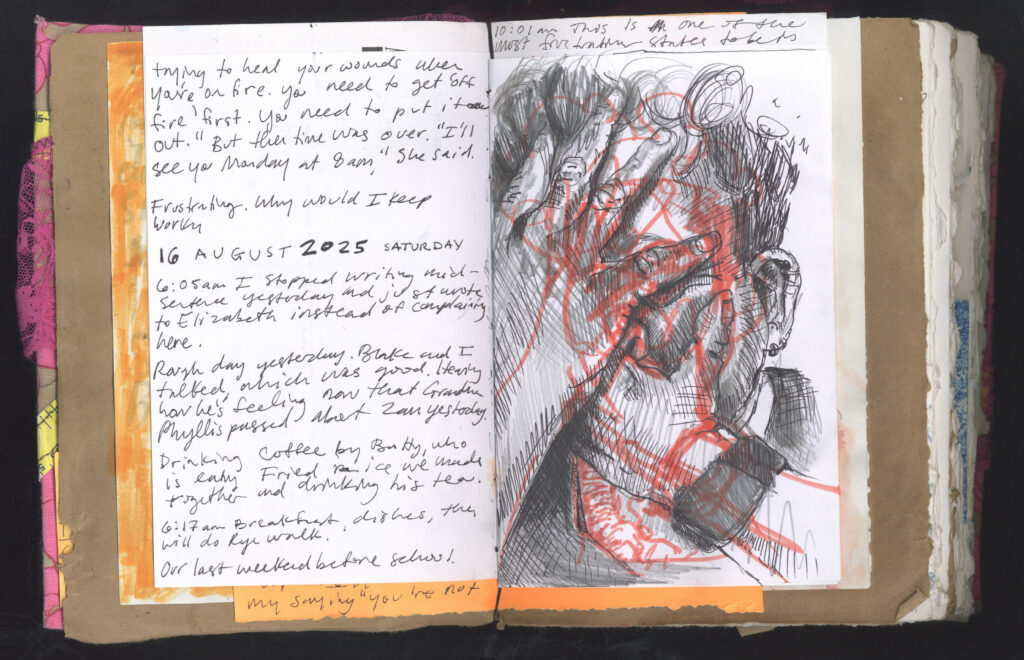 trying to heal your wounds when
you're on fire. You need to get off
fire first. You need to put it
out." But the time was over. "I'll
see you Monday at 8am," she said.
Frustrating. Why would I keep
workn
16 AUGUST 2025 SATURDAY
6:05am I stopped writing mid-
sentence yesterday and just wrote
to Elizabeth instead of complaining
here.
Rough day yesterday. Blake and I
talked, which was good. Hearing
how he's feeling now that Grandma
Phyllis passed about 2am yestoday.
Drinking coffee by Batty, who
is eating Fried rice we made
together and drinking his tea.
6:17am Breakfast, dishes, then
will do Rye walk.
Our last weekend before school.
my saying "you're not
10:01am This is one of the
most frustration states to be is